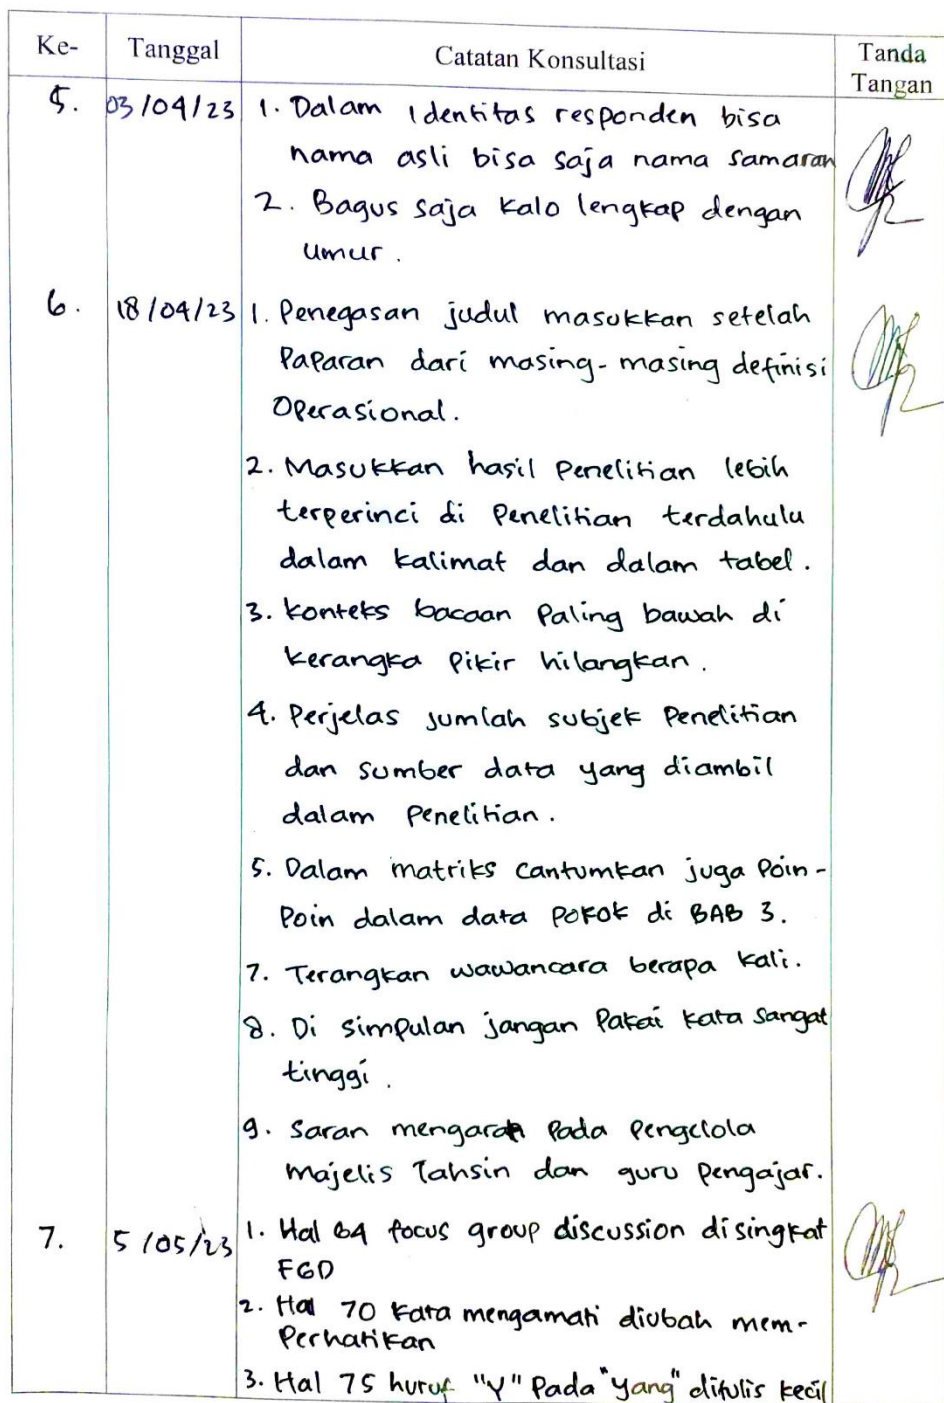 Ke- Tanggal Catatan Konsultasi Tanda Tangan
5. 03/04/23 1. Dalam identitas responden bisa
nama asli bisa saja nama samaran
2. Bagus saja kalo lengkap dengan
umur.
6. 18/04/23 1. Penegasan judul masukkan setelah
Paparan dari masing-masing definisi
Operasional.
2. Masukkan hasil Penelitian lebih
terperinci di Penelitian terdahulu
dalam kalimat dan dalam tabel.
3. konteks bacaan Paling bawah di
kerangka Pikir hilangkan.
4. Perjelas jumlah subjek Penelitian
dan sumber data yang diambil
dalam Penelitian.
5. Dalam matriks cantumkan juga Poin-
Poin dalam data Pokok di BAB 3.
7. Terangkan wawancara berapa kali.
8. Di simpulan jangan Pakai kata sangat
tinggi.
9. Saran mengarah Pada Pengelola
majelis Tahsin dan guru Pengajar.
7. 5/05/23 1. Hal 64 focus group discussion disingkat
FGD
2. Hal 70 kata mengamati diubah mem-
Perhatikan
3. Hal 75 huruf "Y" Pada "yang" ditulis kecil